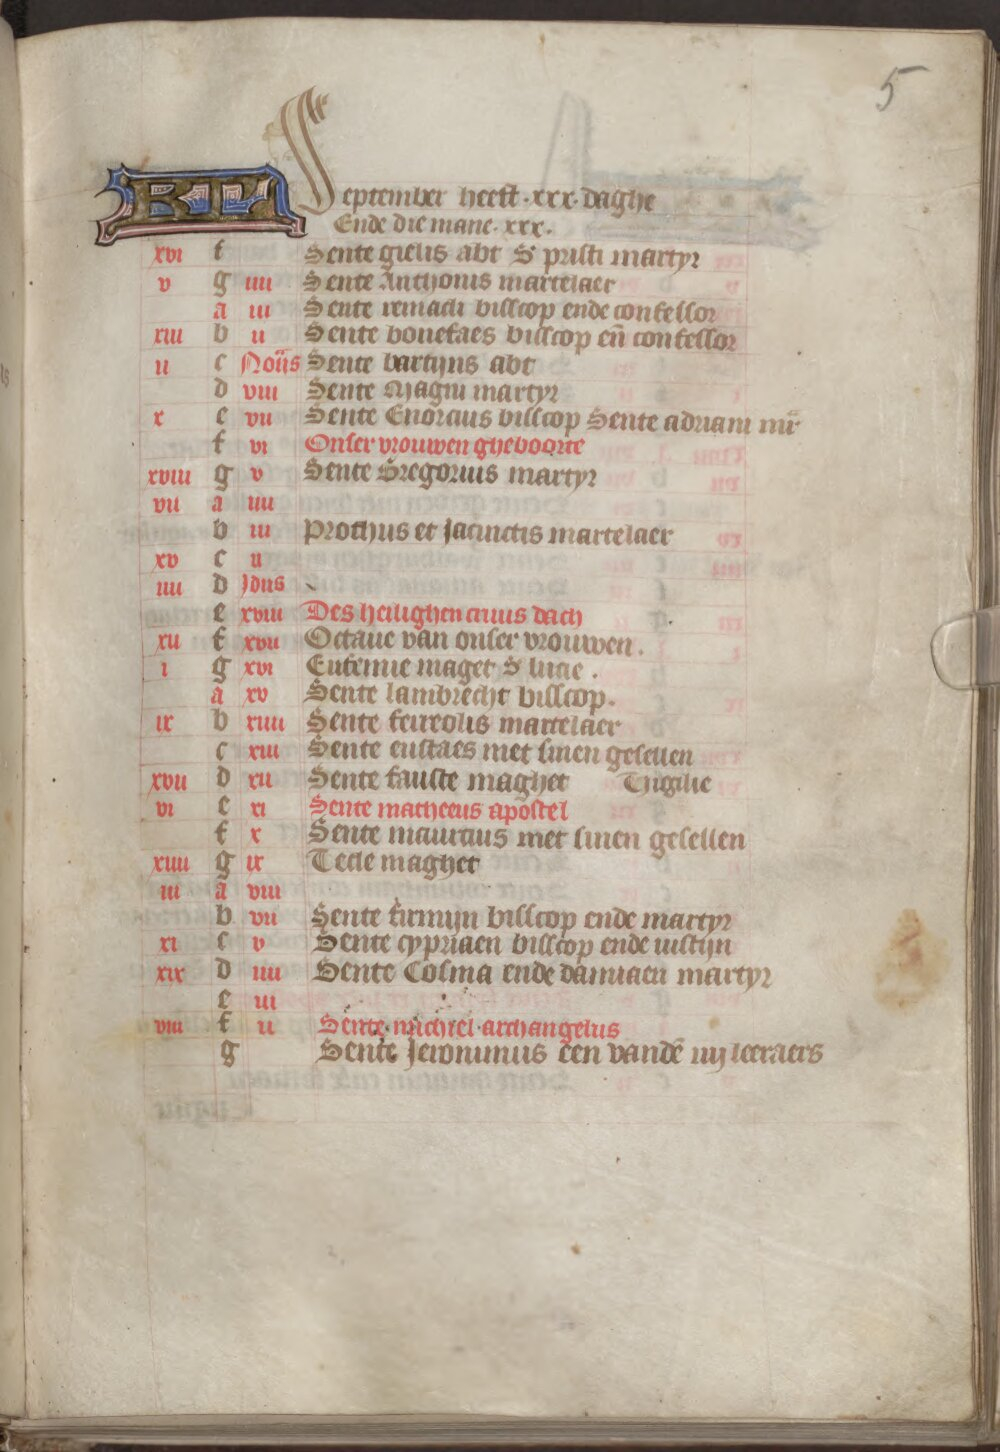 5
KL September heeft .xxx. daghe
Ende die mane. xxx.
xvi f Sente gielis abt S' pristi martyr
v g iiii Sente Anthonis martelaer
a iii Sente remacli bisscop ende confessor
xiii b ii Sente bonefaes bisscop en̄ confessor
ii c Non̄s Sente bartijns abt
d viii Sente Magni martyr
x e vii Sente Euorcius bisscop Sente adriani mr̄
f vi Onser vrouwen gheboorte
xviii g v Sente Gregorius martyr
vii a iiii
b iii Prothus et Jacinctis martelaer
xv c ii
iiii d Jdus
e xviii Des heilighen cruus dach
xii f xvii Octaue van onser vrouwen.
i g xvi Eufemie maget S' lucie.
a xv Sente lambrecht bisscop.
ix b xiiii Sente feureolis martelaer
c xiii Sente eustaes met sinen gesellen
xvii d xii Sente fauste maghet Vigilie
vi e xi Sente matheeus apostel
f x Sente mauricius met sinen gesellen
xiiii g ix Tecle maghet
iii a viii
b vii Sente firmijn bisscop ende martyr
xi c v Sente cypriaen bisscop ende iustijn
xix d iiii Sente Cosma ende damiaen martyr
e iii
viii f ii Sente michiel archangelus
g Sente Jeronimus een vandē iiij leeraers